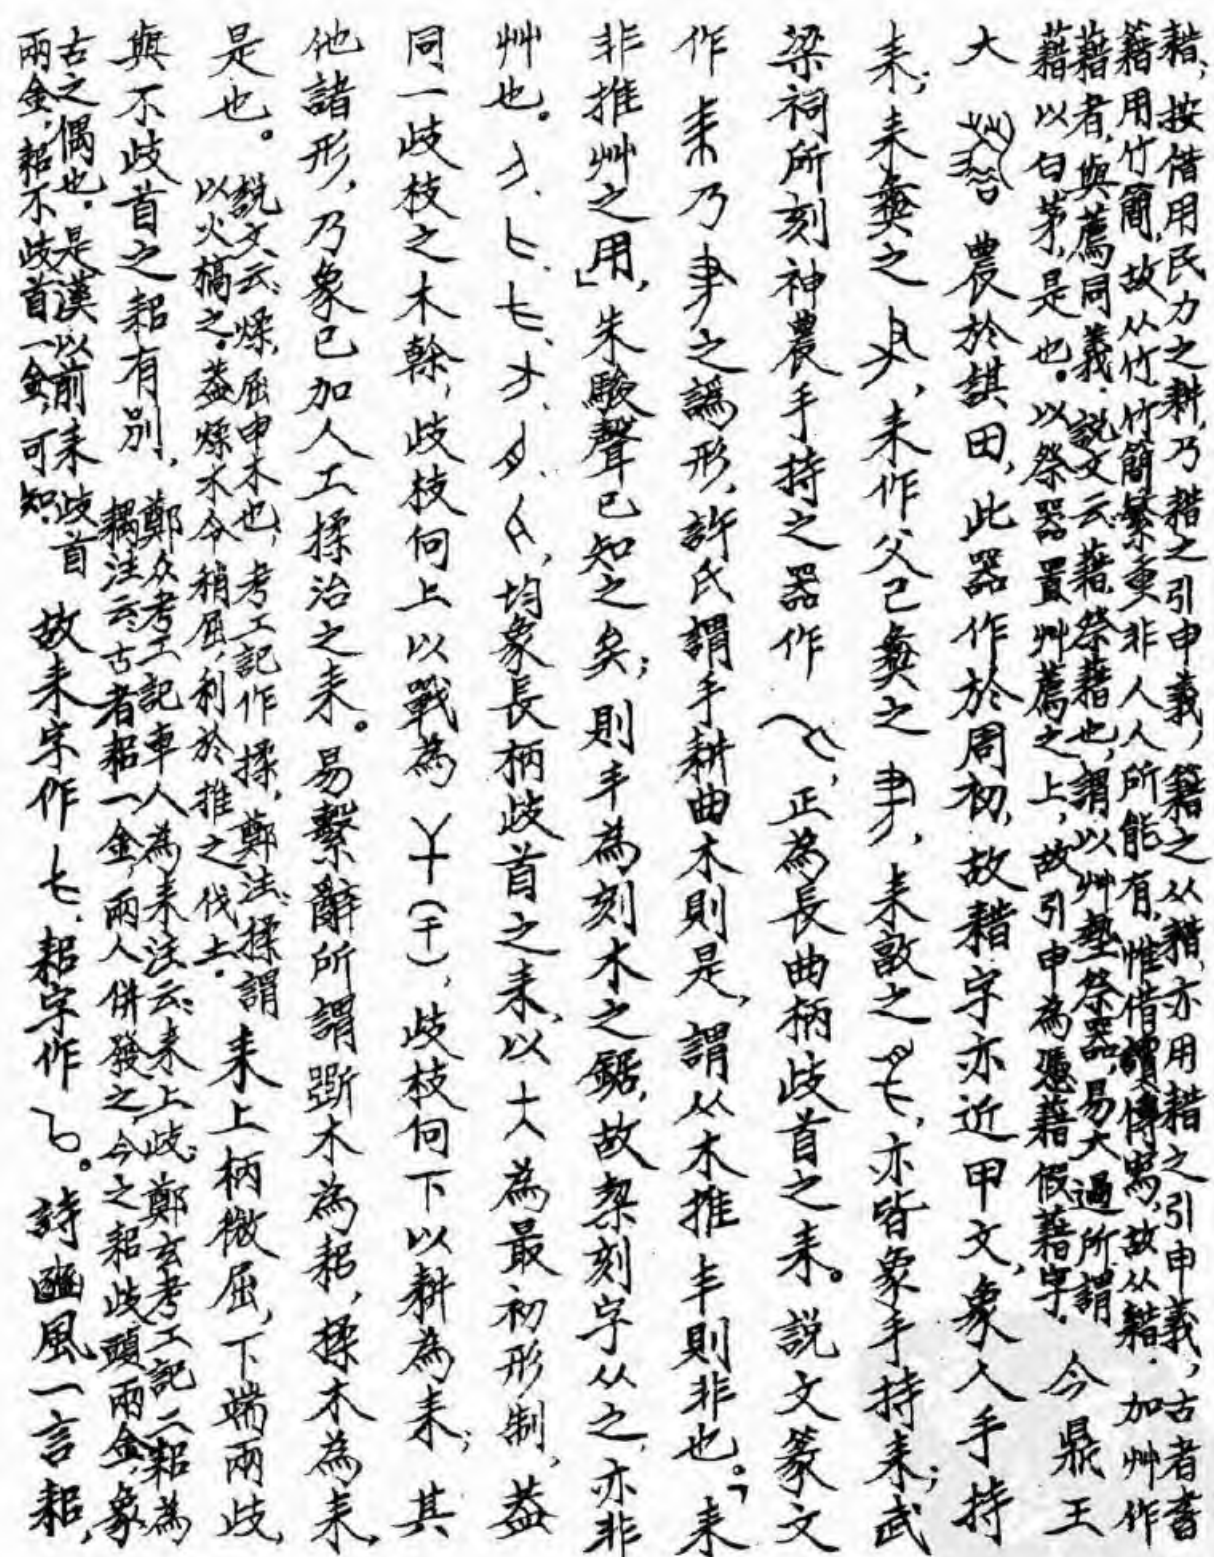 耤;按借用民力之耕,乃耤之引申義,籍之从耤,亦用耤之引申義,古者書
籍用竹簡,故从竹,竹簡繁重,非人人所能有,惟借讀傳寫,故从耤.加艸作
藉者,與薦同義.說文云:藉,祭藉也,謂以艸墊祭器,易大過所謂
藉以白茅,是也。以祭器置艸薦之上,故引申為憑藉假藉字.今鼎王
大 農於諆田,此器作於周初,故耤字亦近甲文,象人手持
耒;耒彝之 ,耒作父己彝之 ,耒敦之 ,亦皆象手持耒;武
梁祠所刻神農手持之器作 ,正為長曲柄歧首之耒。說文篆文
作耒乃 之譌形,許氏謂手耕曲木則是,謂从木推丰則非也。「耒
非推艸之用」,朱駿聲已知之矣;則丰為刻木之鋸,故栔刻字从之,亦非
艸也。 均象長柄歧首之耒,以 為最初形制,蓋
同一歧枝之木榦,歧枝向上以戰為 (干),歧枝向下以耕為耒;其
他諸形,乃象已加人工揉治之耒。易繫辭所謂斲木為耜,揉木為耒,
是也。說文云:煣,屈申木也,考工記作揉,鄭注:揉謂
以火槁之.蓋煣木令稍屈,利於推之伐土.耒上柄微屈,下端兩歧,
與不歧首之耜有別,鄭众考工記車人為耒注云:耒上歧;鄭玄考工記二耜為
耦注云:古者耜一金,兩人併發之,今之耜歧頭兩金,象
古之偶也.是漢以前耒歧首
兩金,耜不歧首一金,可知.故耒字作 ,耜字作 。詩豳風一言耜,